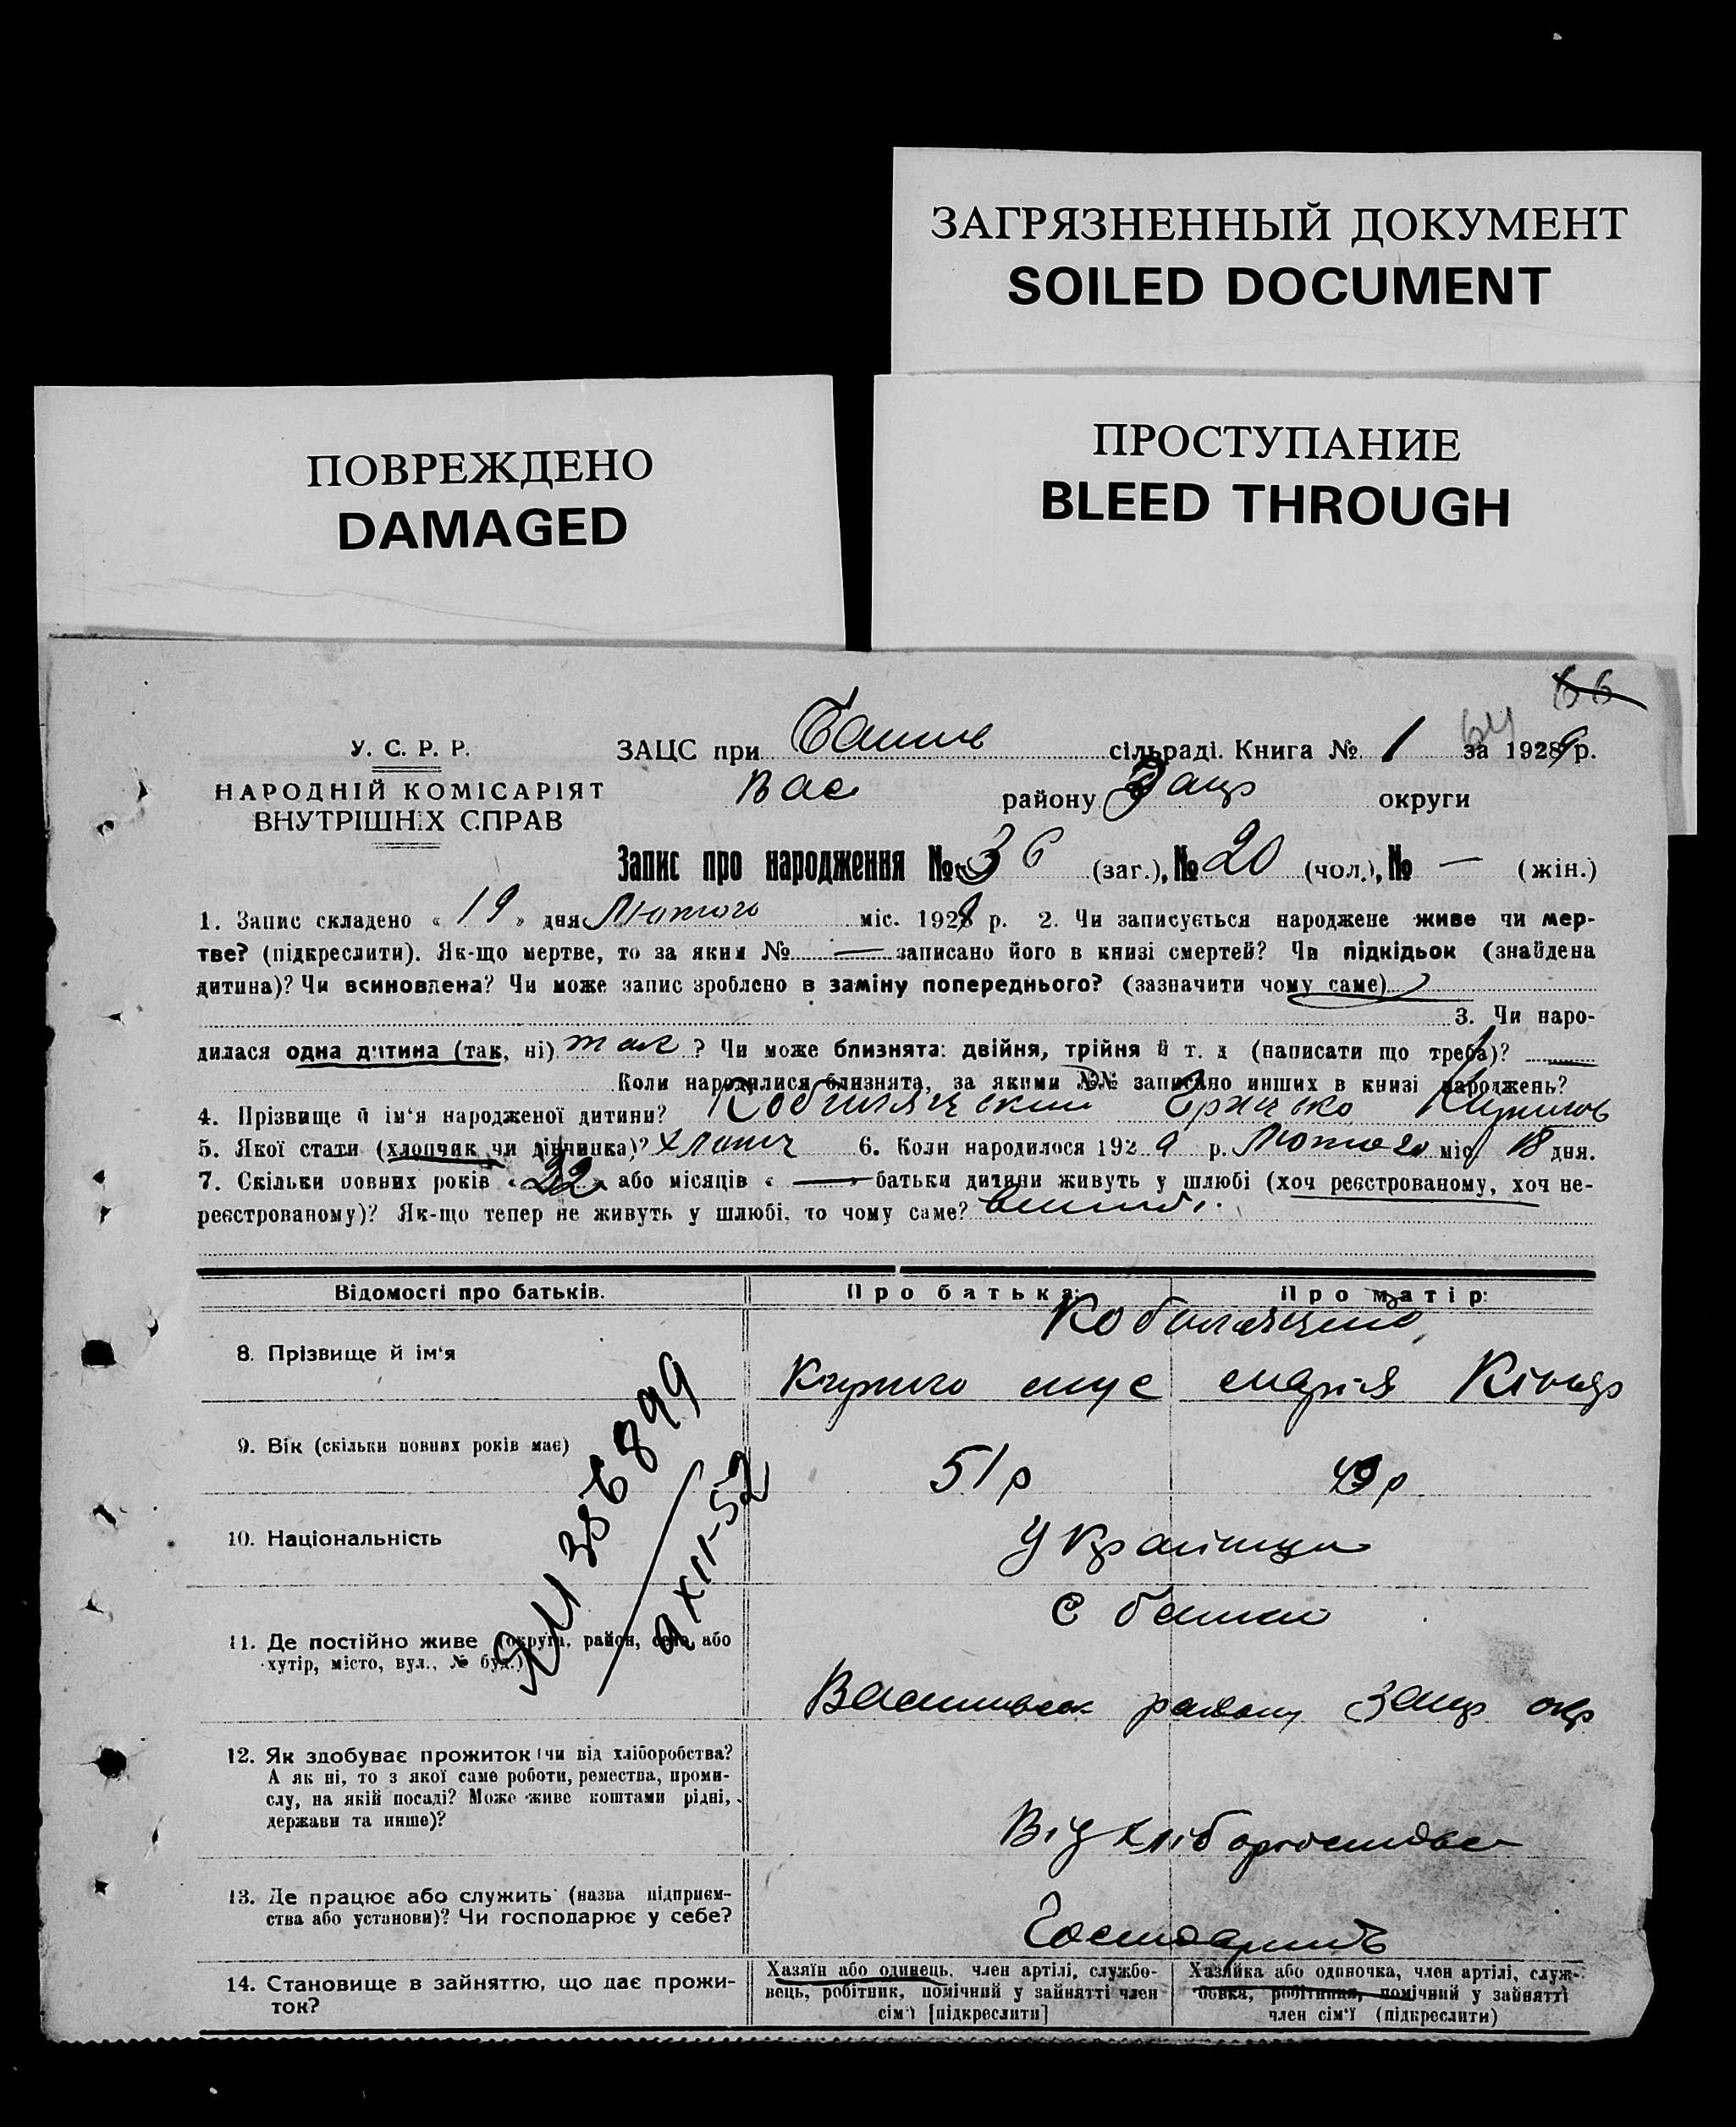 ЗАГРЯЗНЕННЫЙ ДОКУМЕНТ
SOILED DOCUMENT
ПОВРЕЖДЕНО
DAMAGED
ПРОСТУПАНИЕ
BLEED THROUGH
66
64
У. С. Р. Р.
НАРОДНІЙ КОМІСАРІЯТ
ВНУТРІШНІХ СПРАВ
ЗАЦС при сільраді. Книга № 1 за 1929 р.
Вас району Запр округи
Запис про народження № 36 (заг.), № 20 (чол.), № — (жін.)
1. Запис складено « 19 » дня Лютого міс. 1929 р. 2. Чи записується народжене живе чи мер-
тве? (підкреслити). Як-що мертве, то за яким № — записано його в книзі смертей? Чи підкідьок (знайдена
дитина)? Чи всиновлена? Чи може запис зроблено в заміну попереднього? (зазначити чому саме)
3. Чи наро-
дилася одна дитина (так, ні) так ? Чи може близнята: двійня, трійня й т. д (написати що треба)?
Коли народилися близнята, за якими №№ записано инших в книзі народжень?
4. Прізвище й ім'я народженої дитини?
5. Якої стати (хлопчик чи дівчинка)? хлопч 6. Коли народилося 1929 р. Лютого міс. 18 дня.
7. Скільки повних років « 22 » або місяців « — батьки дитини живуть у шлюбі (хоч реєстрованому, хоч не-
реєстрованому)? Як-що тепер не живуть у шлюбі, то чому саме?
Відомості про батьків.
Про батька:
Про матір:
8. Прізвище й ім'я
Марія
9. Вік (скільки повних років має)
51 р
49 р
10. Національність
Українци
11. Де постійно живе (округа, район, село або
хутір, місто, вул., № буд.)
С
Василівськ району Запр окр
386899
9 XII-52
12. Як здобуває прожиток (чи від хліборобства?
А як ні, то з якої саме роботи, ремества, проми-
слу, на якій посаді? Може живе коштами рідні,
держави та инше)?
Від хліборобства
13. Де працює або служить (назва підприєм-
ства або установи)? Чи господарює у себе?
14. Становище в зайняттю, що дає прожи-
ток?
Хазяїн або одинець, член артілі, службо-
вець, робітник, помічний у зайнятті член
сім'ї [підкреслити]
Хазяйка або одиночка, член артілі, служ-
бовка, робітниця, помічний у зайнятті
член сім'ї (підкреслити)